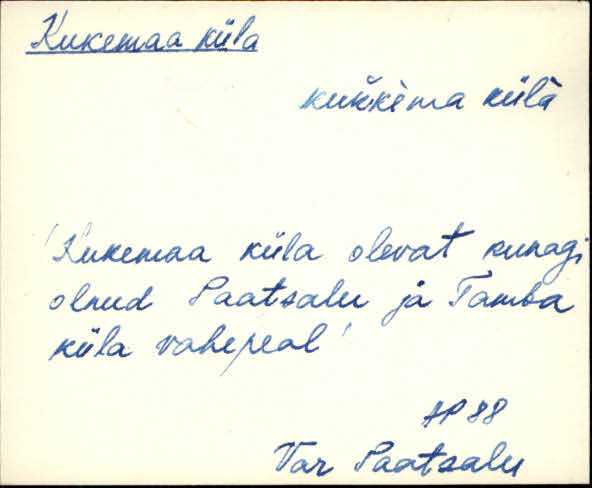 Kukemaa küla
kukkèma külà
'Kukemaa küla olevat kunagi
olnud Paatsalu ja Tamba
küla vahepeal'
AP 88
Var Paatsalu